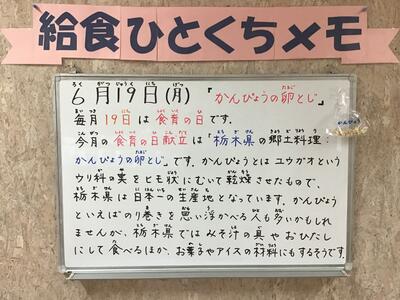 給食ひとくちメモ
6月19日(月) 「かんぴょうの卵とじ」
毎月19日は食育の日です。
今月の食育の日献立は「栃木県の郷土料理：
かんぴょうの卵とじ」です。かんぴょうとはユウガオという
ウリ科の実をヒモ状にむいて乾燥させたもので、
栃木県は日本一の生産地となっています。かんぴょう
といえばのり巻きを思い浮かべる人も多いかもしれ
ませんが、栃木県ではみそ汁の具やおひたし
にして食べるほか、お菓子やアイスの材料にもするそうです。